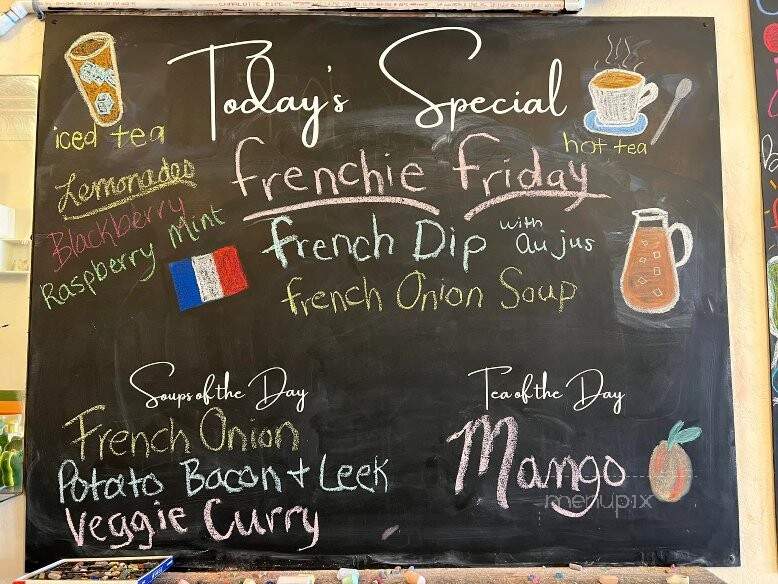 Today's Special
iced tea
hot tea
Lemonades
Blackberry
Raspberry Mint
frenchie friday
french Dip with au jus
french Onion Soup
Soups of the Day
French Onion
Potato Bacon + Leek
Veggie Curry
Tea of the Day
Mango
menupix